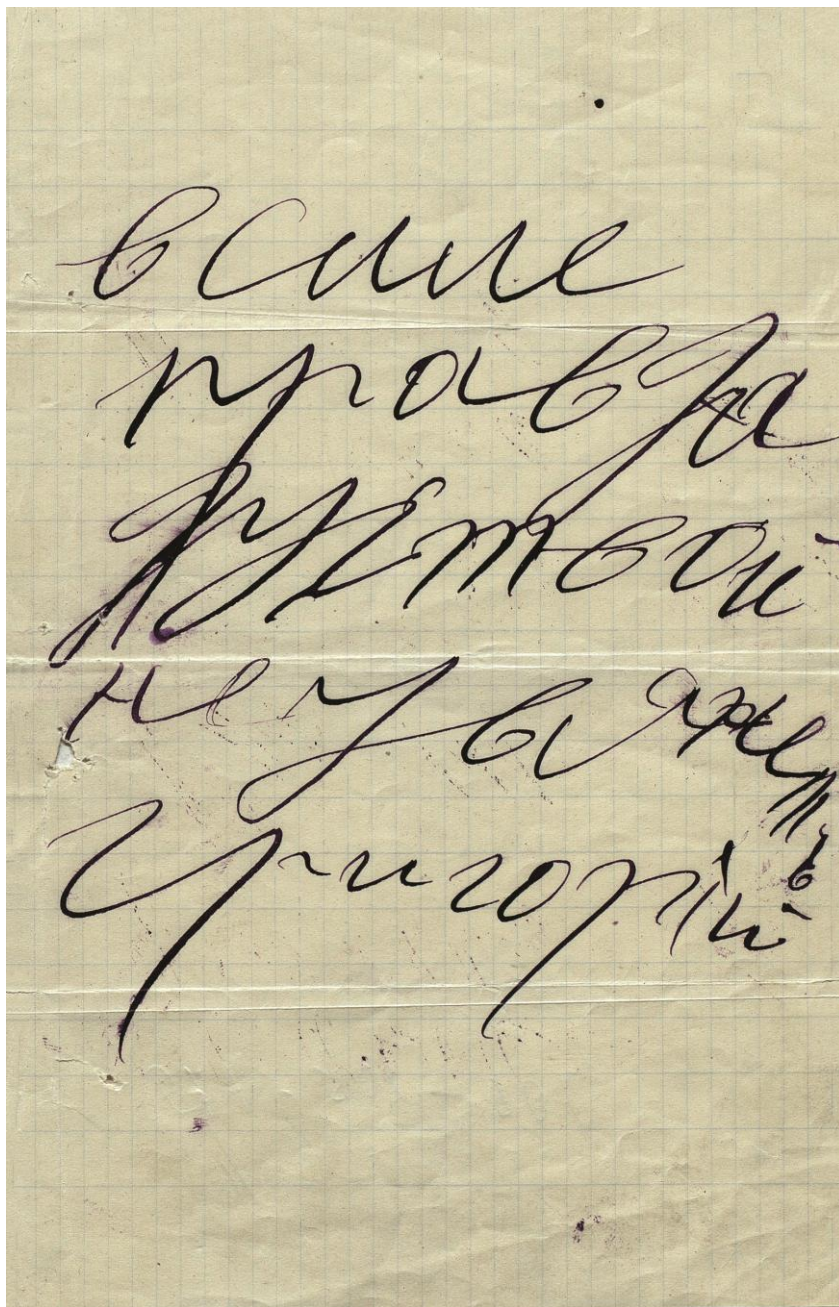 в силе
правда
дух твой
не
Григорій